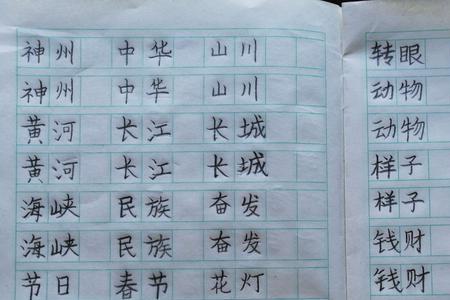 神州 中华 山川
神州 中华 山川
黄河 长江 长城
黄河 长江 长城
海峡 民族 奋发
海峡 民族 奋发
节日 春节 花灯
转眼
动物
动物
样子
样子
钱财
钱财